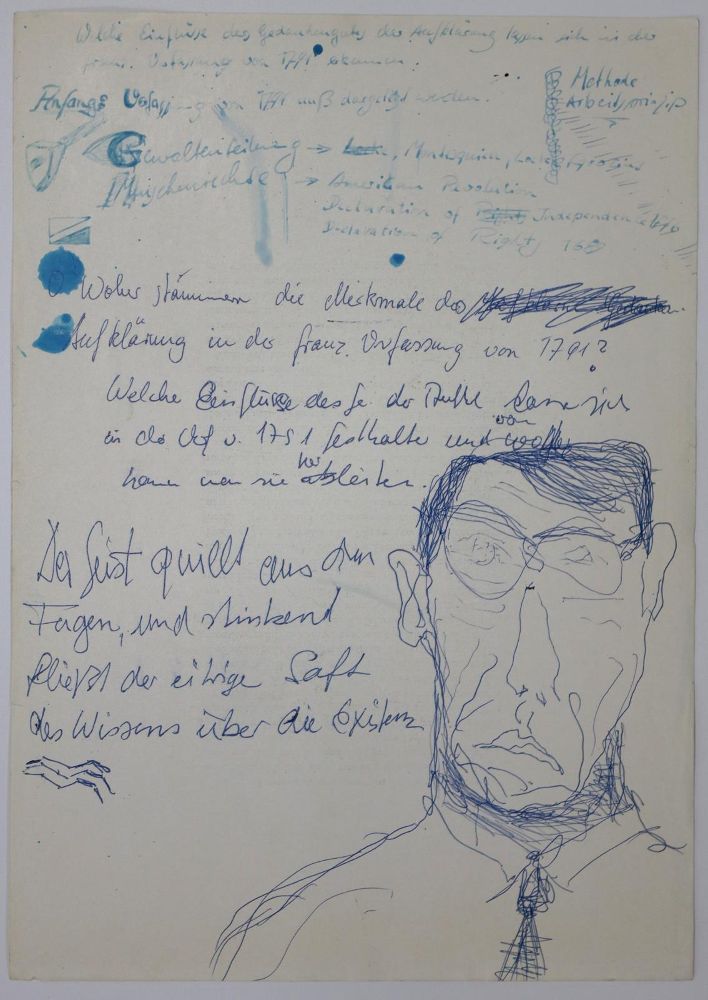 Welche Einflüsse des Gedankenguts der Aufklärung lassen sich in der
franz. Verfassung von 1791 erkennen.
Methode
Anfangs Verfassung von 1791 muß dargelegt werden.
Arbeitsprinzip
Gewaltenteilung → Montesquieu,
Menschenrechte → American Revolution
Declaration of Independence 1776
Declaration of Rights 1689
Woher stammen die Merkmale der
Aufklärung in der franz. Verfassung von 1791?
Welche Einflüsse des der lassen sich
in der Verf v. 1791 festhalten und von
kann man sie herleiten.
Der Geist quillt aus den
Fugen, und stinkend
fließt der eitrige Saft
des Wissens über die Existenz